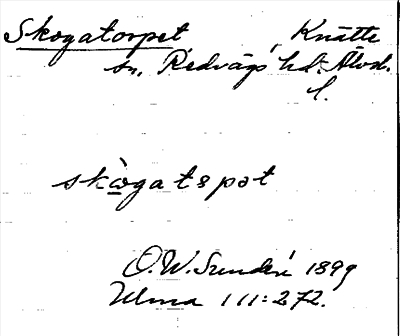 Skogatorpet Knätte
sn. Redvägs hd. Älvsb.
l.
skògatspət
O. W. Sundén 1899
Ulma 111:272.